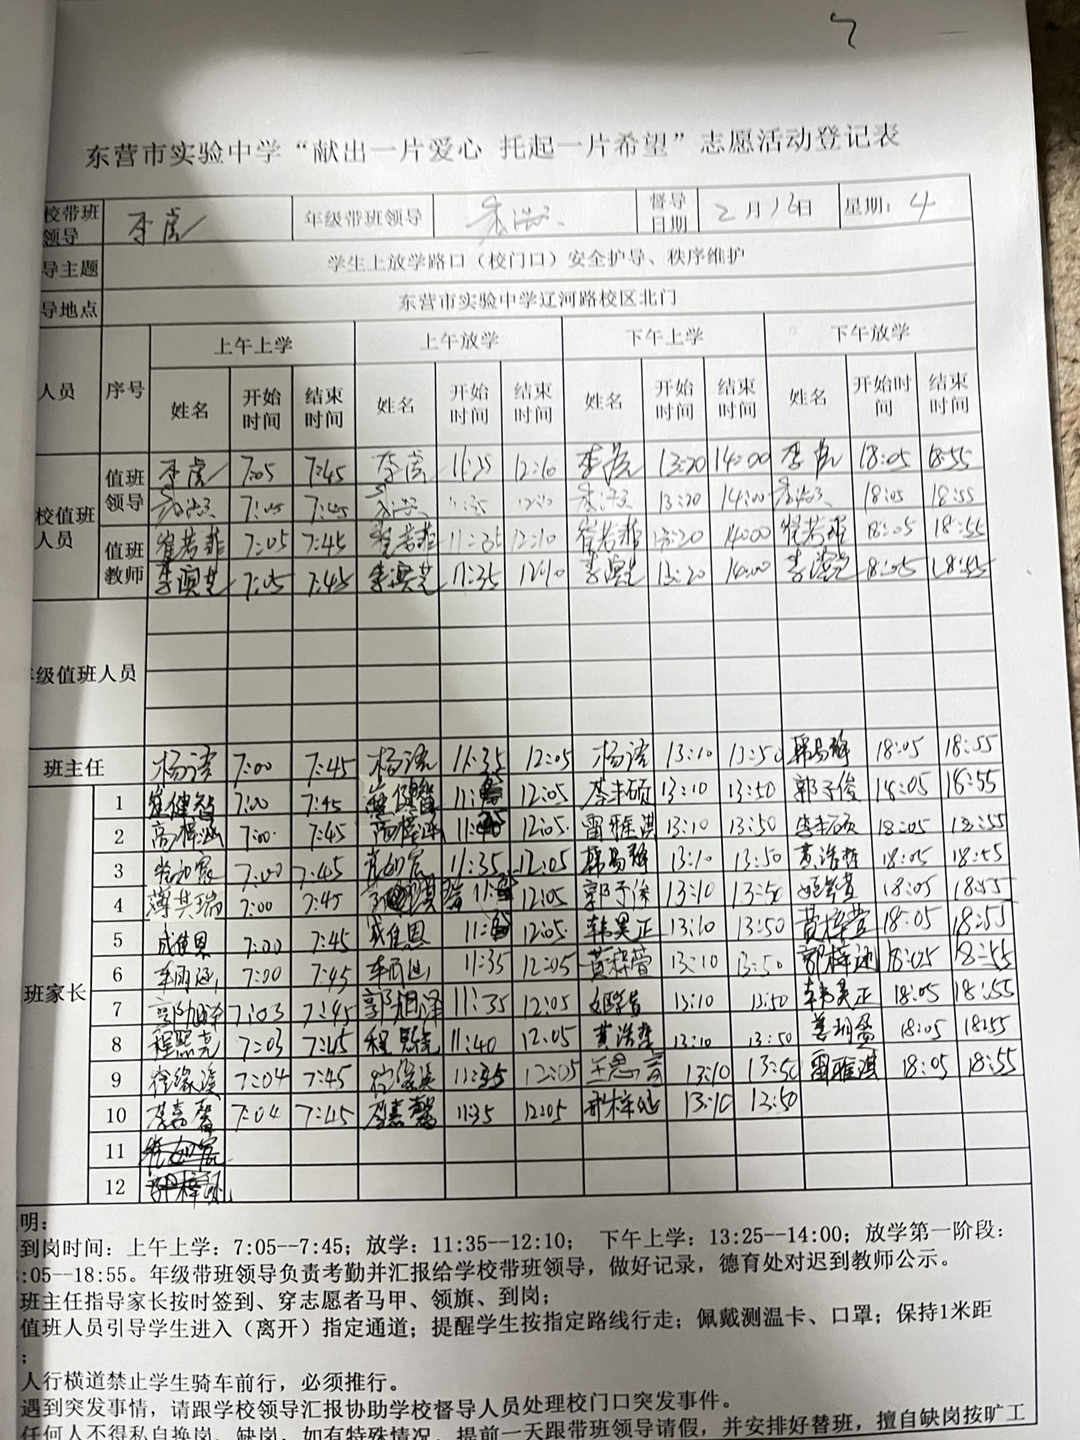 东营市实验中学“献出一片爱心 托起一片希望”志愿活动登记表
校带班领导 李虎 年级带班领导 督导日期 2月16日 星期：4
导主题 学生上放学路口（校门口）安全护导、秩序维护
导地点 东营市实验中学辽河路校区北门
人员 序号 上午上学 上午放学 下午上学 下午放学
姓名 开始时间 结束时间 姓名 开始时间 结束时间 姓名 开始时间 结束时间 姓名 开始时间 结束时间
校值班人员 值班领导 李虎 7:05 7:45 李虎 11:35 12:10 李虎 13:20 14:00 李虎 18:05 18:55
7:05 7:45 11:35 12:10 13:20 14:00 18:05 18:55
值班教师 崔若菲 7:05 7:45 崔若菲 11:35 12:10 崔若菲 13:20 14:00 崔若菲 18:05 18:55
7:05 7:45 11:35 12:10 13:20 14:00 18:05 18:55
年级值班人员
班主任 杨涛 7:00 7:45 杨涛 11:35 12:05 杨涛 13:10 13:50 韩易静 18:05 18:55
班家长
1 崔健智 7:00 7:45 崔健智 12:05 李丰硕 13:10 13:50 郭子俊 18:05 18:55
2 高梓涵 7:00 7:45 高梓涵 12:05 雷雅淇 13:10 13:50 李丰硕 18:05 18:55
3 7:00 7:45 11:35 12:05 韩易静 13:10 13:50 黄浩哲 18:05 18:55
4 薄其瑞 7:00 7:45 12:05 郭子俊 13:10 13:50 18:05 18:55
5 成佳恩 7:00 7:45 成佳恩 12:05 韩昊正 13:10 13:50 黄梓萱 18:05 18:55
6 车雨涵 7:00 7:45 车雨涵 11:35 12:05 黄梓萱 13:10 13:50 18:05 18:55
7 郭旭泽 7:03 7:45 郭旭泽 11:35 12:05 13:10 13:50 韩昊正 18:05 18:55
8 程熙尧 7:03 7:45 11:40 12:05 黄浩哲 13:10 13:50 姜玥盈 18:05 18:55
9 7:04 7:45 11:35 12:05 13:10 13:50 雷雅淇 18:05 18:55
10 李嘉馨 7:04 7:45 李嘉馨 11:35 12:05 13:10 13:50
11
12
明：
到岗时间：上午上学：7:05--7:45；放学：11:35--12:10； 下午上学：13:25--14:00；放学第一阶段：
:05--18:55。年级带班领导负责考勤并汇报给学校带班领导，做好记录，德育处对迟到教师公示。
班主任指导家长按时签到、穿志愿者马甲、领旗、到岗；
值班人员引导学生进入（离开）指定通道；提醒学生按指定路线行走；佩戴测温卡、口罩；保持1米距
；
人行横道禁止学生骑车前行，必须推行。
遇到突发事情，请跟学校领导汇报协助学校督导人员处理校门口突发事件。
任何人不得私自换岗、缺岗，如有特殊情况，提前一天跟带班领导请假，并安排好替班，擅自缺岗按旷工